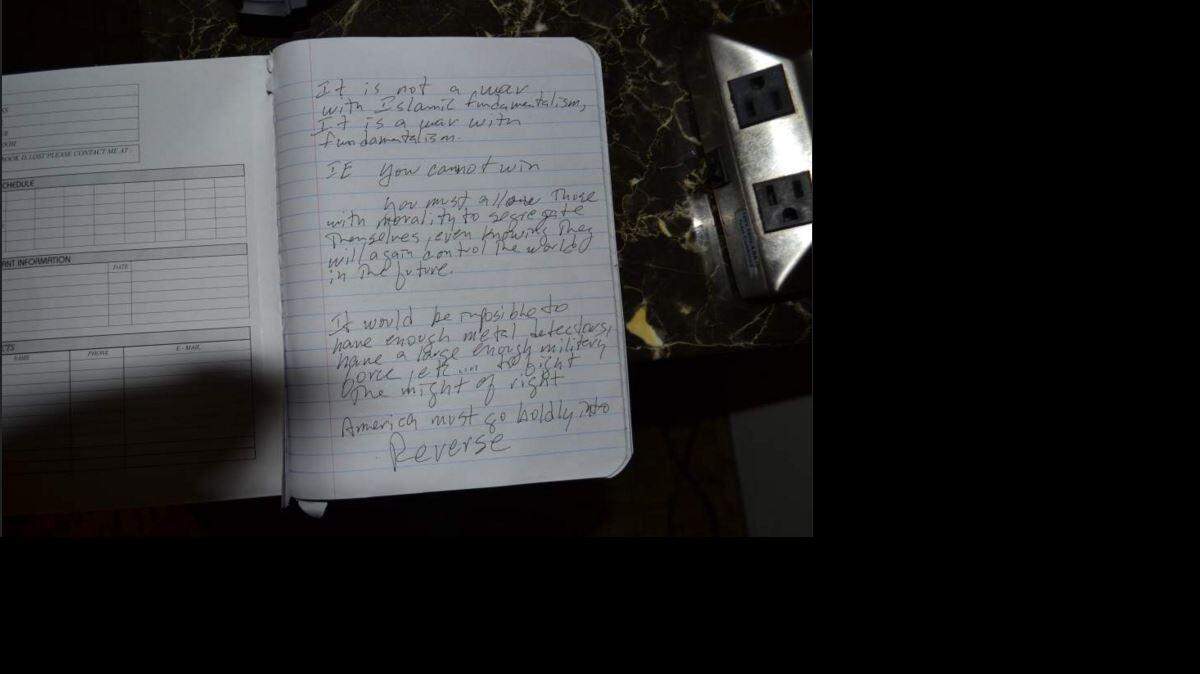 It is not a war
with Islamic fundamentalism,
It is a war with
fundamentalism.
IE you cannot win
You must allow those
with morality to segregate
themselves, even knowing they
will again control the world
in the future.
It would be imposible to
have enough metal detectors,
have a large enough military
force, etc.... to fight
the might of right
America must go boldly into
Reverse
BOOK IS LOST PLEASE CONTACT ME AT
CHEDULE
ANT INFORMATION
DATE
CTS
NAME PHONE E - MAIL